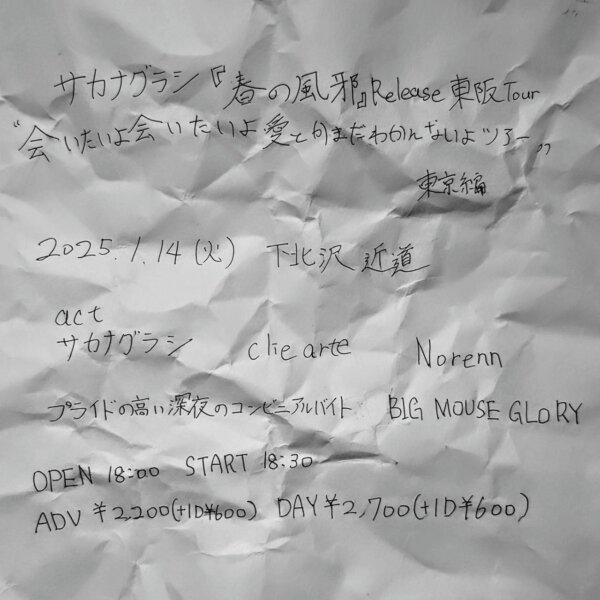 サカナグラシ『春の風邪』Release 東阪Tour
"会いたいよ会いたいよ愛とかまだわかんないよツアー"
東京編
2025.1.14(火) 下北沢 近道
act
サカナグラシ clie arte Norenn
プライドの高い深夜のコンビニアルバイト BIG MOUSE GLORY
OPEN 18:00 START 18:30
ADV ¥2,200(+1D¥600) DAY ¥2,700(+1D¥600)